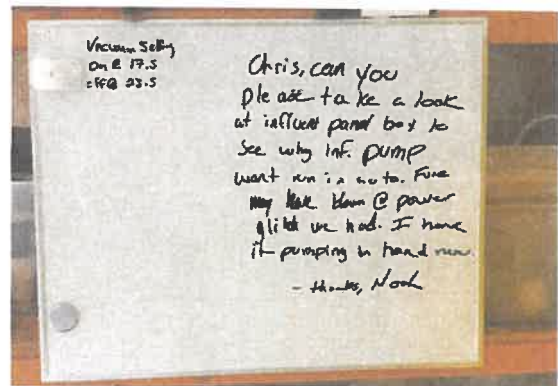 Vacuum Setting
On @ 17.5
off@ 23.5
Chris, can you
please take a look
at influent panel box to
see why inf. pump
want run in auto. Fuse
may have blown @ power
glitch we had. I have
it pumping in hand now.
- thanks, Noah